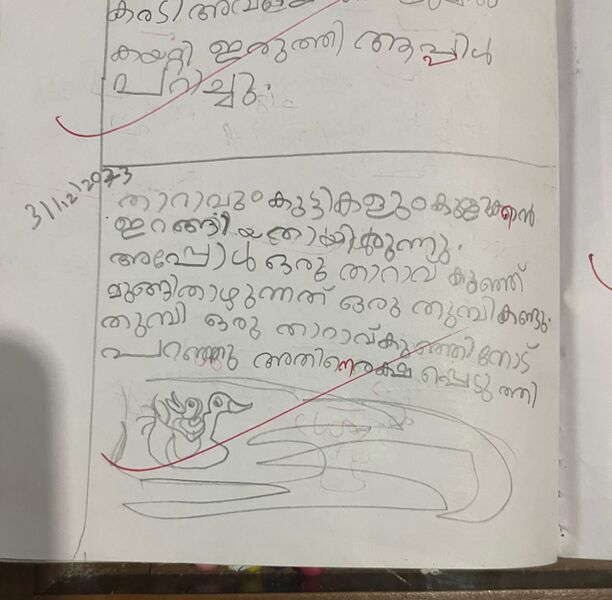 കരടി അവളെ
കയറ്റി ഇരുത്തി ആപ്പിൾ
പറിച്ചു.
31/12/2023
താറാവും കുട്ടികളും കുളിക്കാൻ
ഇറങ്ങിയതായിരുന്നു.
അപ്പോൾ ഒരു താറാവ് കുഞ്ഞ്
മുങ്ങിതാഴുന്നത് ഒരു തുമ്പി കണ്ടു.
തുമ്പി ഒരു താറാവ്കുഞ്ഞിനോട്
പറഞ്ഞു അതിനെരക്ഷ പ്പെടുത്തി